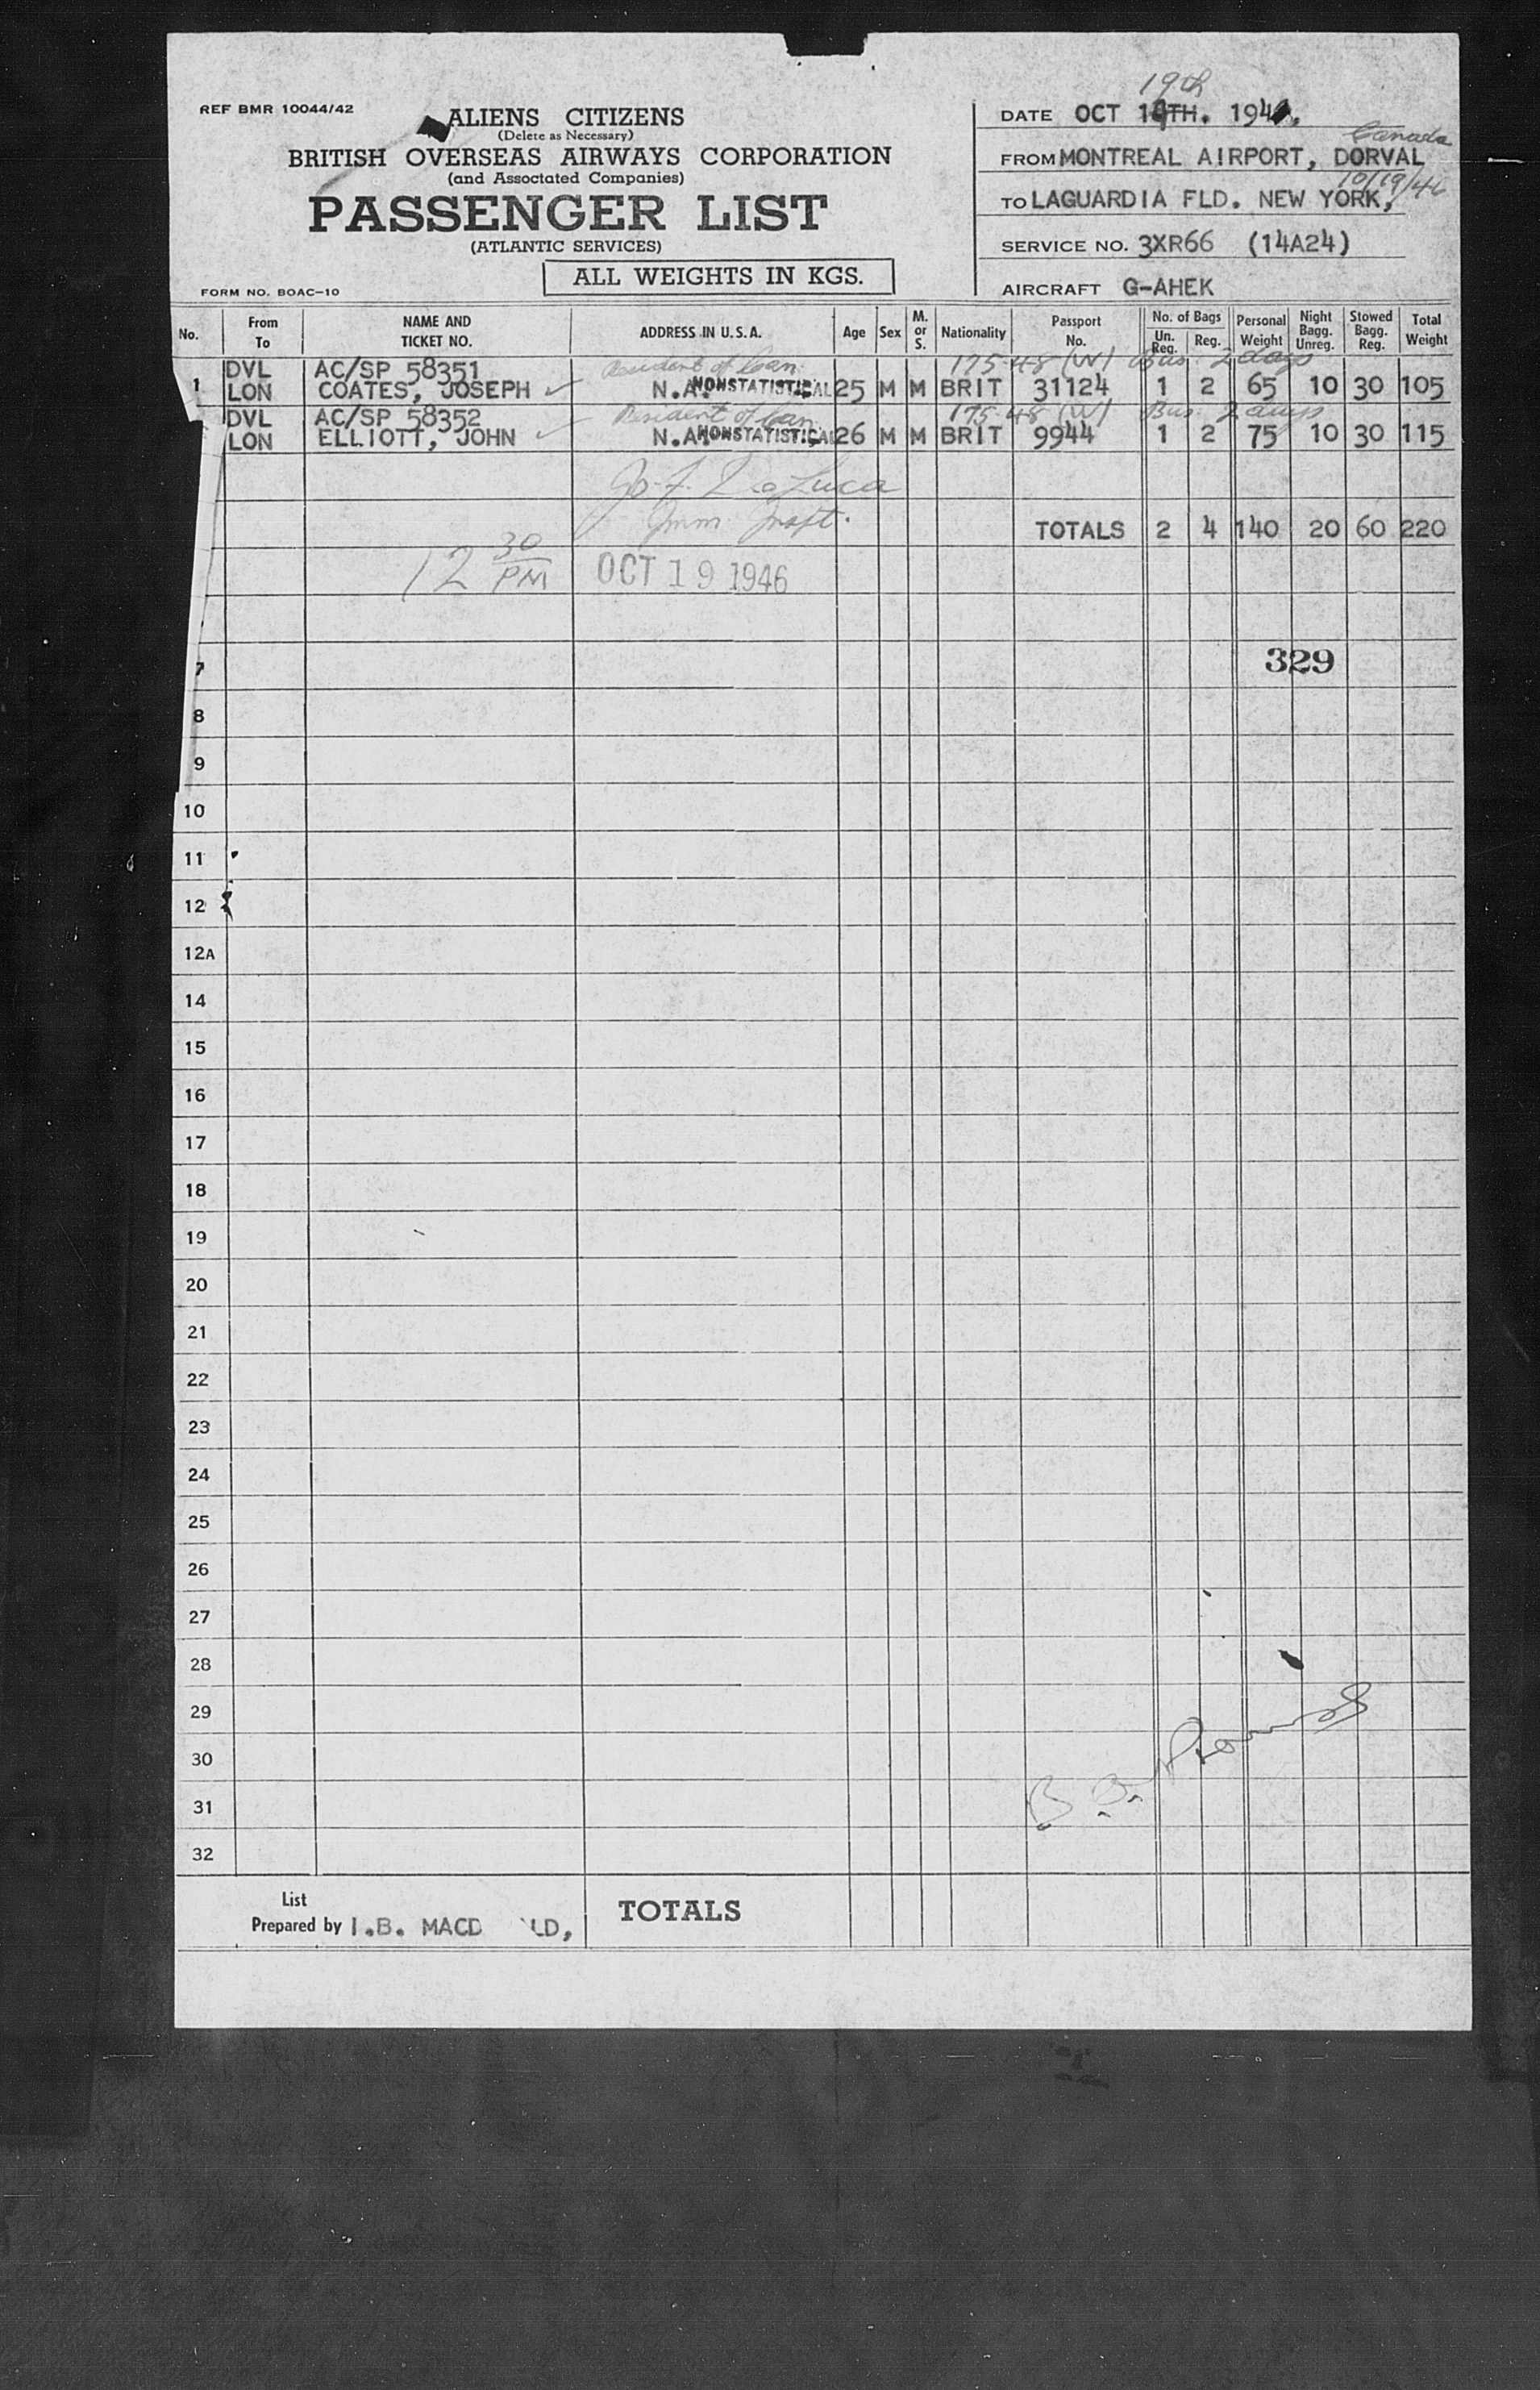 19th
REF BMR 10044/42
ALIENS CITIZENS
(Delete as Necessary)
BRITISH OVERSEAS AIRWAYS CORPORATION
(and Associated Companies)
PASSENGER LIST
(ATLANTIC SERVICES)
ALL WEIGHTS IN KGS.
FORM NO. BOAC-10
DATE OCT 19TH. 194
Canada
FROM MONTREAL AIRPORT, DORVAL
10/19/46
TO LAGUARDIA FLD. NEW YORK,
SERVICE NO. 3XR66 (14A24)
AIRCRAFT G-AHEK
No. From To NAME AND TICKET NO. ADDRESS IN U.S.A. Age Sex M. or S. Nationality Passport No. No. of Bags Un. Reg. Reg. Personal Weight Night Bagg. Unreg. Stowed Bagg. Reg. Total Weight
DVL AC/SP 58351 Resident of Can. 175-48 (W) Bus. 2 days
1 LON COATES, JOSEPH ✓ N.A. NONSTATISTICAL 25 M M BRIT 31124 1 2 65 10 30 105
DVL AC/SP 58352 Resident of Can. 175-48 (W) Bus. 2 days
LON ELLIOTT, JOHN ✓ N.A. NONSTATISTICAL 26 M M BRIT 9944 1 2 75 10 30 115
Imm. Inspt.
TOTALS 2 4 140 20 60 220
12 30 PM OCT 19 1946
7 329
8
9
10
11
12
12A
14
15
16
17
18
19
20
21
22
23
24
25
26
27
28
29
30
31
32
List
Prepared by I.B. MACD LD, TOTALS